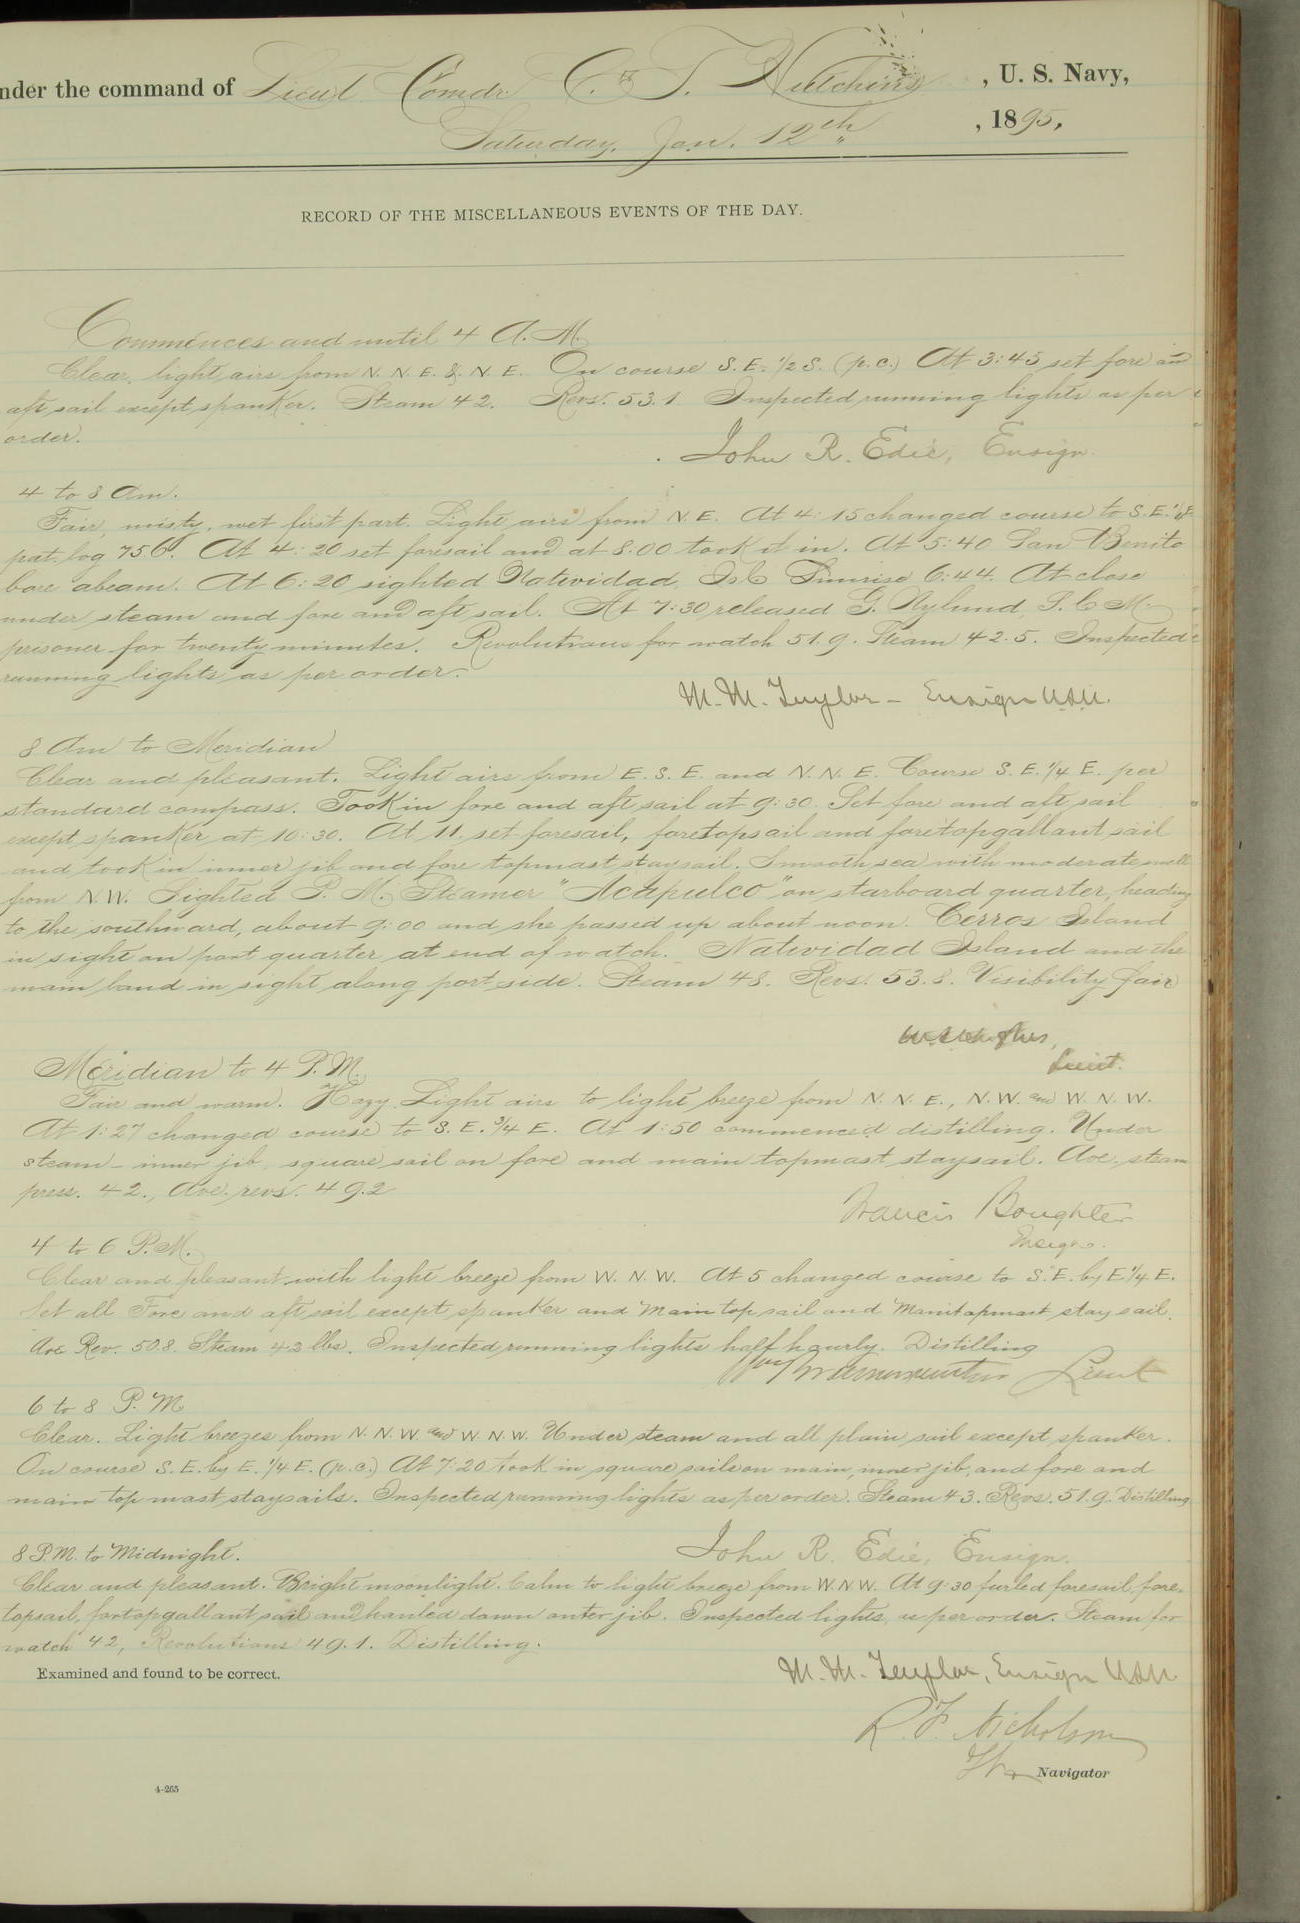 nder the command of Lieut Comdr. C. T. Hutchins, U. S. Navy,
Saturday, Jan. 12th, 1895,
RECORD OF THE MISCELLANEOUS EVENTS OF THE DAY.
Commences and until 4 A. M.
Clear, light airs from N. N. E. & N E. On course S. E. 1/2 S. (p. c.) At 3:45 set fore and
aft sail except spanker. Steam 42. Revs. 53.1 Inspected running lights as per
order.
John R. Edie, Ensign.
4 to 8 Am.
Fair, misty, wet first part. Light airs from N. E. At 4:15 changed course to S. E.
pat. log 75.6. At 4:20 set foresail and at 8:00 took it in. At 5:40 San Benito
bore abeam. At 6:20 sighted Natividad Isl Sunrise 6:44. At close
under steam and fore and aft sail. At 7:30 released G. Nylund, S. C. M.
prisoner for twenty minutes. Revolutions for watch 51.9. Steam 42.5. Inspected
running lights as per order.
M. M. Taylor - Ensign U.S.N.
8 Am to Meridian
Clear and pleasant. Light airs from E. S. E. and N. N. E. Course S. E. 1/4 E. per
standard compass. Took in fore and aft sail at 9:30. Set fore and aft sail
except spanker at 10:30. At 11, set foresail, foretopsail and foretopgallant sail
and took in inner jib and fore topmast staysail. Smooth sea with moderate swell
from N. W. Sighted P. M. Steamer "Acapulco" on starboard quarter, heading
to the southward, about 9:00 and she passed up about noon. Cerros Island
in sight on port quarter at end of watch. Natividad Island and the
main land in sight along port side. Steam 48. Revs. 53.8. Visibility fair
Lieut.
Meridian to 4 P. M.
Fair and warm. Hazy. Light airs to light breeze from N. N. E., N. W. and W. N. W.
At 1:27 changed course to S. E. 3/4 E. At 1:50 commenced distilling. Under
steam - inner jib, square sail on fore and main topmast staysail. Ave. steam
press. 42., Ave. revs. 49.2
Francis Boughter
Ensign.
4 to 6 P. M.
Clear and pleasant with light breeze from W. N. W. At 5 changed course to S. E. by E. 1/4 E.
Set all Fore and aft sail except spanker and Main top sail and Maintopmast stay sail.
Ave Rev. 50.8. Steam 43 lbs. Inspected running lights half hourly. Distilling
Lieut
6 to 8 P. M
Clear. Light breezes from N. N. W and W. N. W. Under steam and all plain sail except spanker.
On course S. E. by E. 1/4 E. (p. c.) At 7:20 took in square sails on main, inner jib, and fore and
main top mast staysails. Inspected running lights as per order. Steam 43. Revs. 51.9. Distilling
John R. Edie, Ensign.
8 P.M. to Midnight.
Clear and pleasant. Bright moonlight. Calm to light breeze from W. N W. At 9:30 furled foresail, fore-
topsail, fortopgallant sail and hauled down outer jib. Inspected lights, as per order. Steam for
watch 42, Revolutions 49.1. Distilling.
Examined and found to be correct.
M. M. Taylor, Ensign USN
R. F. Nicholson
Navigator
4-265